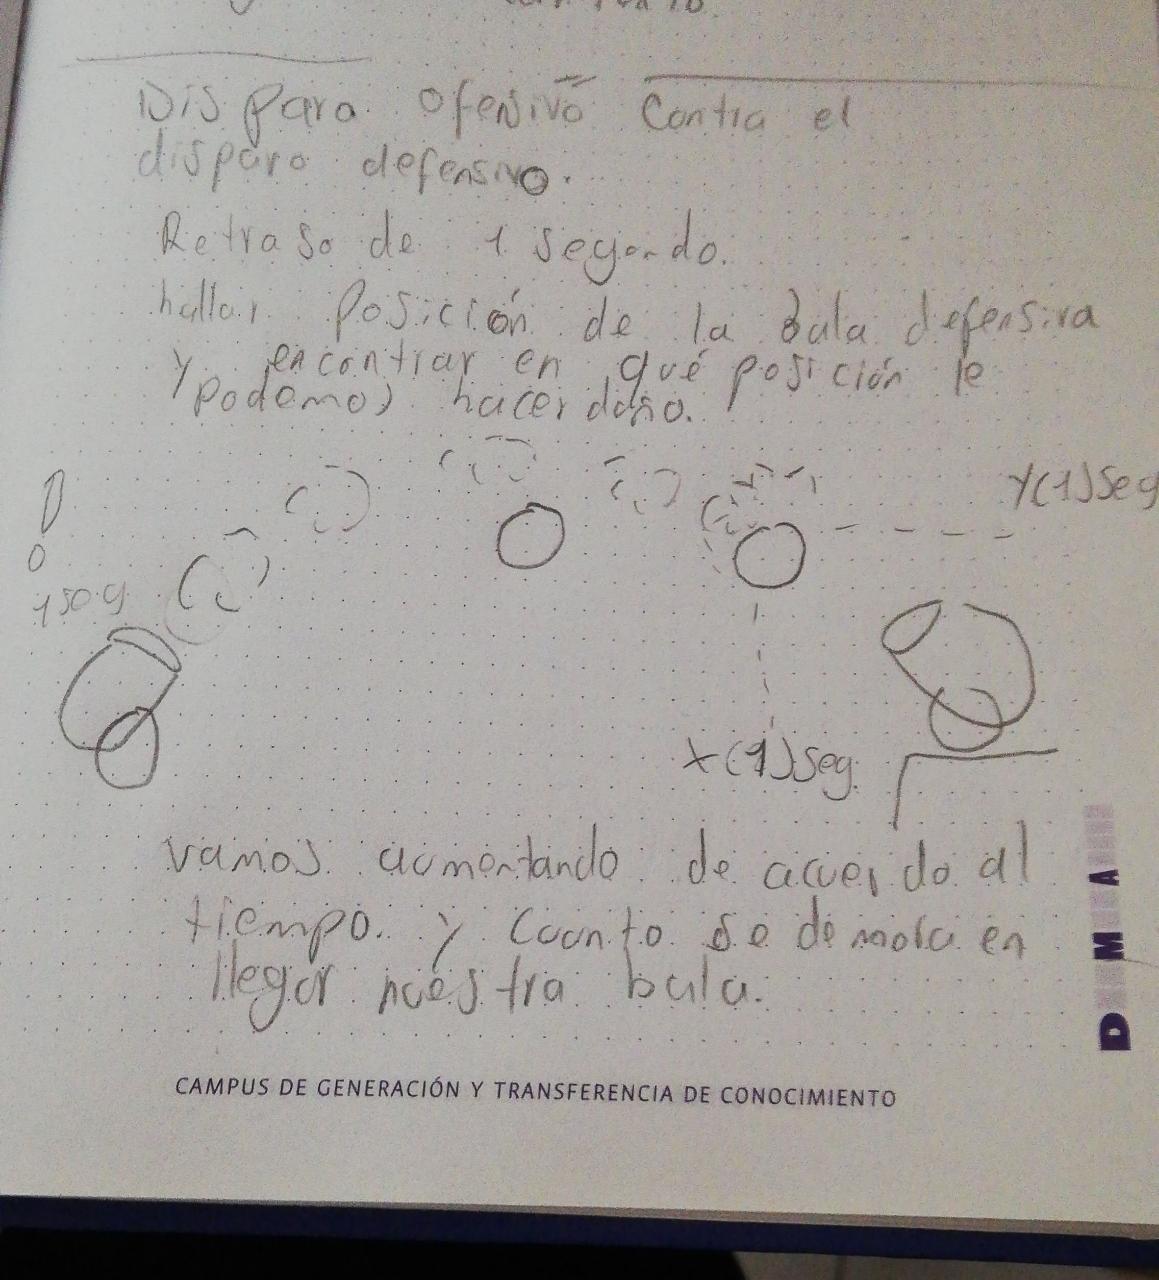 Disparo Ofensivo Contra el
disparo defensivo.
Retraso de 1 segundo.
hallar Posición de la Bala defensiva
y encontrar en qué posición le
podemos hacer daño.
y(1)seg
1 seg
x(1)seg.
vamos aumentando de acuerdo al
tiempo. y Cuanto se demora en
llegar nuestra bala.
D M A
CAMPUS DE GENERACIÓN Y TRANSFERENCIA DE CONOCIMIENTO